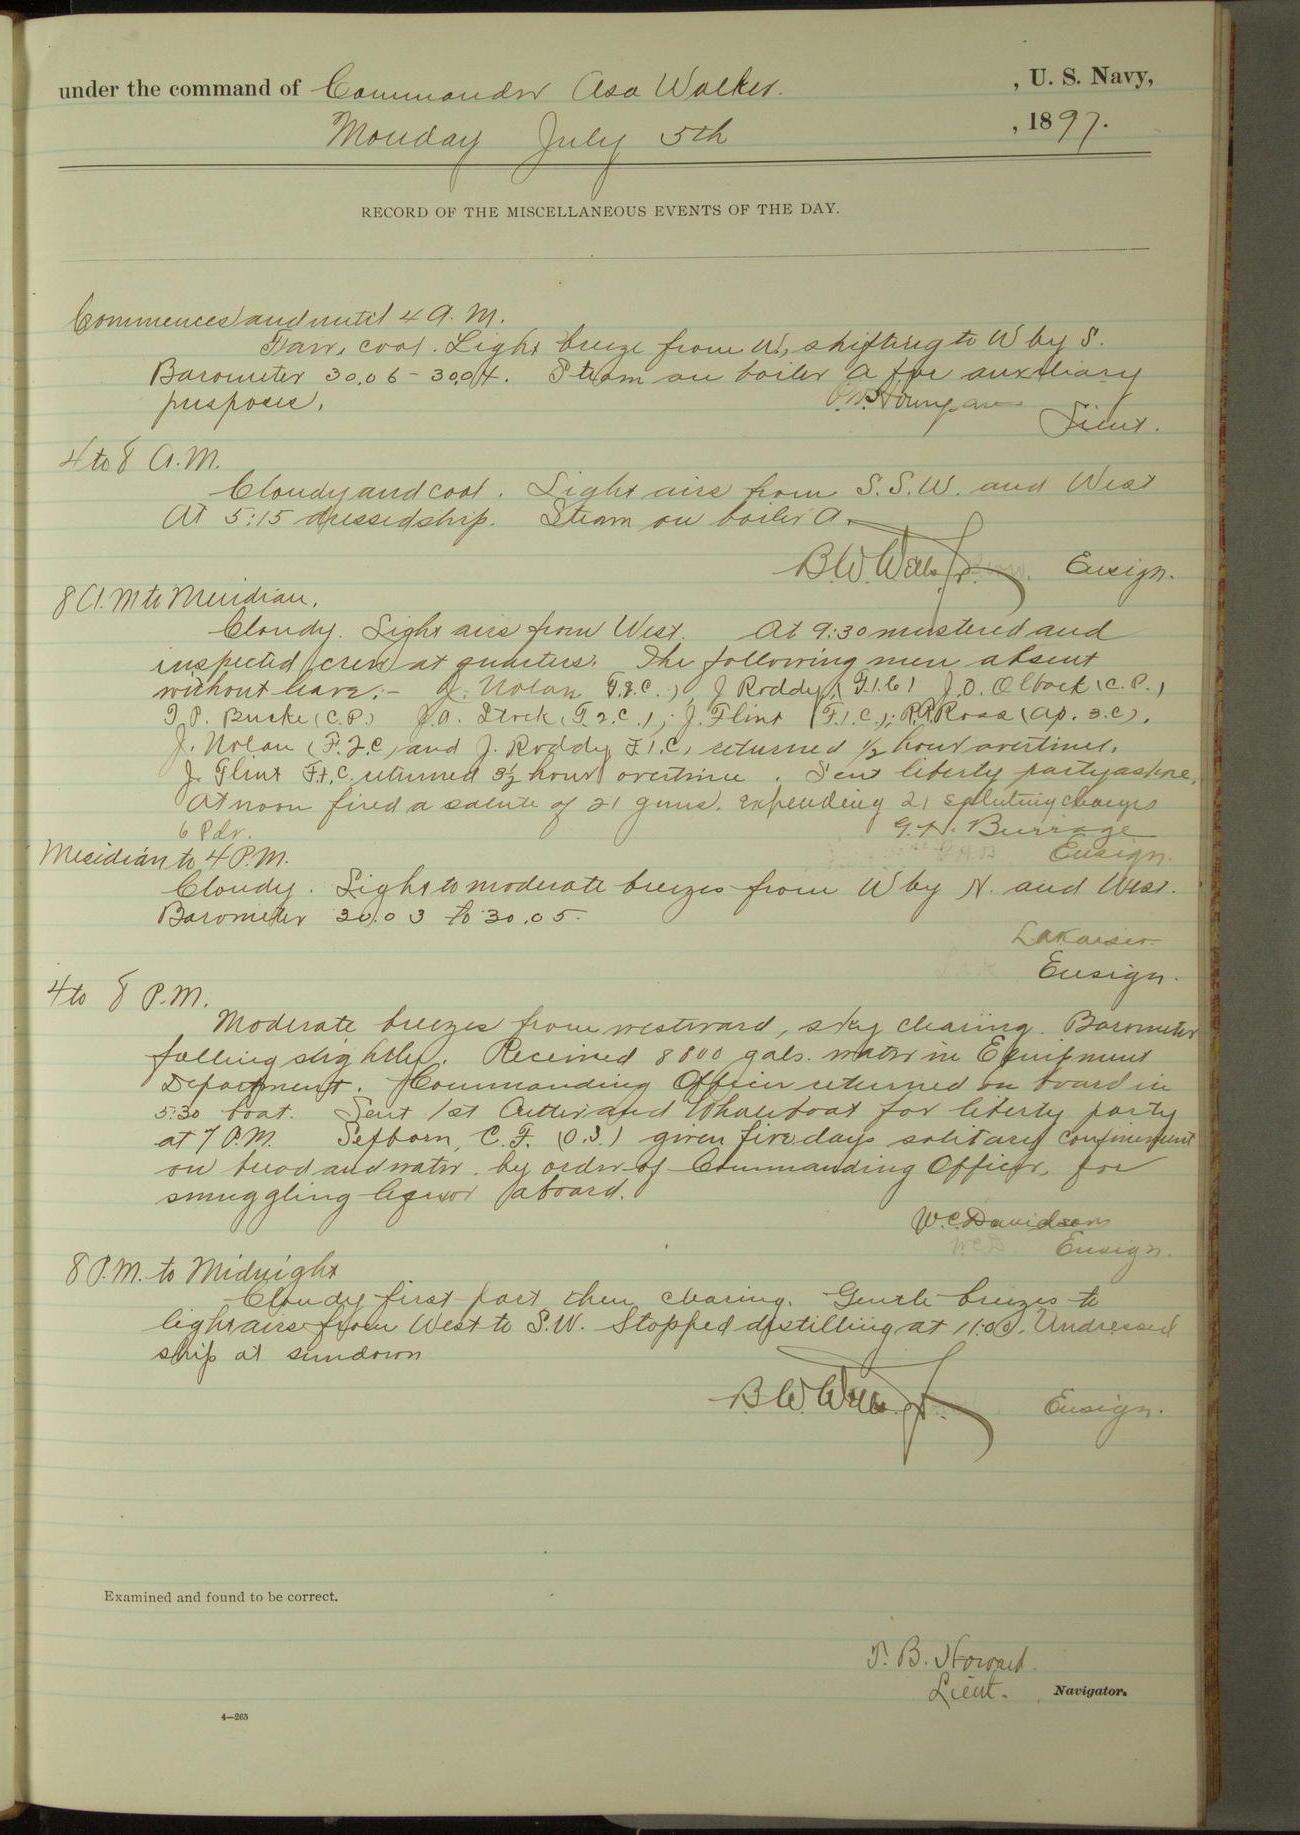 under the command of Commander Asa Walker. , U. S. Navy,
Monday July 5th , 1897.
RECORD OF THE MISCELLANEOUS EVENTS OF THE DAY.
Commences and until 4 A.M.
Fair, cool. Light breeze from W, shifting to W by S.
Barometer 30.06 - 30.04. Steam on boiler A for auxiliary
purposes.
Lieut.
4 to 8 A.M.
Cloudy and cool. Light airs from S.S.W. and West
At 5:15 dressed ship. Steam on boiler A.
B.W. Wells Jr. Ensign.
8 A.M to Meridian.
Cloudy. Light airs from West. At 9:30 mustered and
inspected crew at quarters. The following men absent
without leave:- J. Nolan F.2.C.) J Roddy, (F.1.C) J.O. (C.P.)
P. Burke (C.P.) J.A. (F.2.C.), J. Flint (F.1.C.); R.R. Ross (Ap. 3.C).
J. Nolan (F.2.C) and J. Roddy F.1.C, returned 1/2 hour overtime.
J. Flint F.1.C. returned 3 1/2 hour overtime. Sent liberty party ashore.
At noon fired a salute of 21 guns. expending 21 saluting charges
6 Pdr. G.H. Burrage
Ensign.
Meridian to 4 P.M.
Cloudy. Light to moderate breezes from W by N. and West.
Barometer 30.03 to 30.05.
L.A. Kaiser
Ensign.
4 to 8 P.M.
Moderate breezes from westward, sky clearing. Barometer
falling slightly. Received 8800 gals. water in Equipment
Department. Commanding Officer returned on board in
5:30 boat. Sent 1st Cutter and Whaleboat for liberty party
at 7 P.M. Sefborn, C.F. (O.S.) given five days solitary confinement
on bread and water by order of Commanding Officer, for
smuggling liquor aboard.
W.C. Davidson
W.C.D. Ensign.
8 P.M. to Midnight
Cloudy first part then clearing. Gentle breezes to
light airs from West to S.W. Stopped distilling at 11:00. Undressed
ship at sundown
B.W. Wells Jr. Ensign.
Examined and found to be correct.
T. B. Howard.
Lieut. , Navigator.
4—265